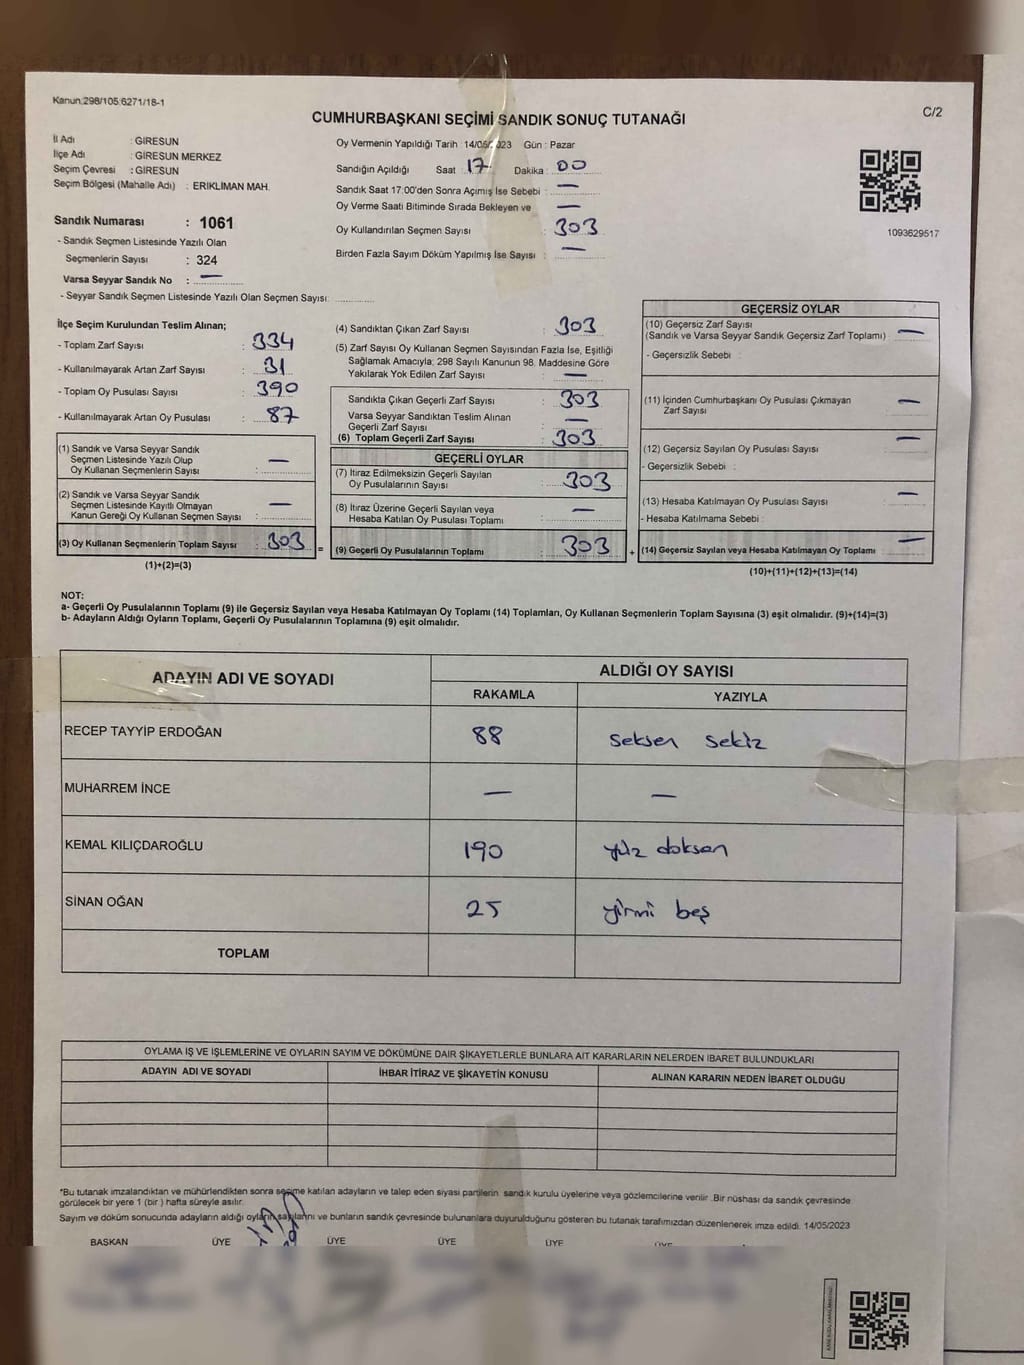 Kanun:298/105:6271/18-1
C/2
CUMHURBAŞKANI SEÇİMİ SANDIK SONUÇ TUTANAĞI
İl Adı : GİRESUN
İlçe Adı : GİRESUN MERKEZ
Seçim Çevresi : GİRESUN
Seçim Bölgesi (Mahalle Adı) : ERIKLIMAN MAH.
Sandık Numarası : 1061
- Sandık Seçmen Listesinde Yazılı Olan
Seçmenlerin Sayısı : 324
Varsa Seyyar Sandık No : —
- Seyyar Sandık Seçmen Listesinde Yazılı Olan Seçmen Sayısı:
Oy Vermenin Yapıldığı Tarih : 14/05/2023 Gün : Pazar
Sandığın Açıldığı Saat : 17 Dakika : 00
Sandık Saat 17:00'den Sonra Açımış İse Sebebi : —
Oy Verme Saati Bitiminde Sırada Bekleyen ve —
Oy Kullandırılan Seçmen Sayısı : 303
Birden Fazla Sayım Döküm Yapılmış İse Sayısı : —
1093629517
İlçe Seçim Kurulundan Teslim Alınan;
- Toplam Zarf Sayısı : 334
- Kullanılmayarak Artan Zarf Sayısı : 31
- Toplam Oy Pusulası Sayısı : 390
- Kullanılmayarak Artan Oy Pusulası : 87
(1) Sandık ve Varsa Seyyar Sandık
Seçmen Listesinde Yazılı Olup
Oy Kullanan Seçmenlerin Sayısı : —
(2) Sandık ve Varsa Seyyar Sandık
Seçmen Listesinde Kayıtlı Olmayan
Kanun Gereği Oy Kullanan Seçmen Sayısı : —
(3) Oy Kullanan Seçmenlerin Toplam Sayısı : 303
(1)+(2)=(3)
(4) Sandıktan Çıkan Zarf Sayısı : 303
(5) Zarf Sayısı Oy Kullanan Seçmen Sayısından Fazla İse, Eşitliği
Sağlamak Amacıyla; 298 Sayılı Kanunun 98. Maddesine Göre
Yakılarak Yok Edilen Zarf Sayısı : —
Sandıkta Çıkan Geçerli Zarf Sayısı : 303
Varsa Seyyar Sandıktan Teslim Alınan
Geçerli Zarf Sayısı : —
(6) Toplam Geçerli Zarf Sayısı : 303
GEÇERLİ OYLAR
(7) İtiraz Edilmeksizin Geçerli Sayılan
Oy Pusulalarının Sayısı : 303
(8) İtiraz Üzerine Geçerli Sayılan veya
Hesaba Katılan Oy Pusulası Toplamı : —
= (9) Geçerli Oy Pusulalarının Toplamı : 303
GEÇERSİZ OYLAR
(10) Geçersiz Zarf Sayısı
(Sandık ve Varsa Seyyar Sandık Geçersiz Zarf Toplamı) : —
- Geçersizlik Sebebi :
(11) İçinden Cumhurbaşkanı Oy Pusulası Çıkmayan
Zarf Sayısı : —
(12) Geçersiz Sayılan Oy Pusulası Sayısı : —
- Geçersizlik Sebebi :
(13) Hesaba Katılmayan Oy Pusulası Sayısı : —
- Hesaba Katılmama Sebebi :
+ (14) Geçersiz Sayılan veya Hesaba Katılmayan Oy Toplamı : —
(10)+(11)+(12)+(13)=(14)
NOT:
a- Geçerli Oy Pusulalarının Toplamı (9) ile Geçersiz Sayılan veya Hesaba Katılmayan Oy Toplamı (14) Toplamları, Oy Kullanan Seçmenlerin Toplam Sayısına (3) eşit olmalıdır. (9)+(14)=(3)
b- Adayların Aldığı Oyların Toplamı, Geçerli Oy Pusulalarının Toplamına (9) eşit olmalıdır.
ADAYIN ADI VE SOYADI
ALDIĞI OY SAYISI
RAKAMLA YAZIYLA
RECEP TAYYİP ERDOĞAN 88 seksen sekiz
MUHARREM İNCE — —
KEMAL KILIÇDAROĞLU 190 yüz doksan
SİNAN OĞAN 25 yirmi beş
TOPLAM
OYLAMA İŞ VE İŞLEMLERİNE VE OYLARIN SAYIM VE DÖKÜMÜNE DAİR ŞİKAYETLERLE BUNLARA AİT KARARLARIN NELERDEN İBARET BULUNDUKLARI
ADAYIN ADI VE SOYADI İHBAR İTİRAZ VE ŞİKAYETİN KONUSU ALINAN KARARIN NEDEN İBARET OLDUĞU
*Bu tutanak imzalandıktan ve mühürlendikten sonra seçime katılan adayların ve talep eden siyasi partilerin sandık kurulu üyelerine veya gözlemcilerine verilir. Bir nüshası da sandık çevresinde
görülecek bir yere 1 (bir) hafta süreyle asılır.
Sayım ve döküm sonucunda adayların aldığı oyların sayılarını ve bunların sandık çevresinde bulunanlara duyurulduğunu gösteren bu tutanak tarafımızdan düzenlenerek imza edildi. 14/05/2023
BAŞKAN ÜYE ÜYE ÜYE ÜYE ÜYE